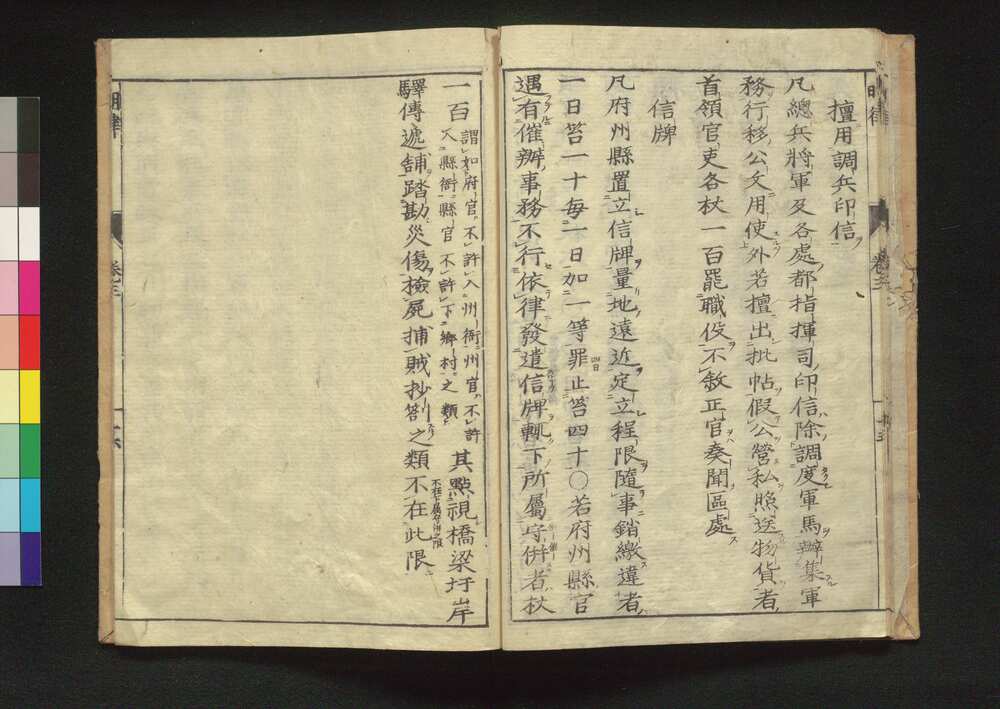 擅用調兵印信
凡總兵將軍及各處都指揮司印信除調度軍馬辦集軍
務行移公文用使外若擅出批帖假公營私照送物貨者
首領官吏各杖一百罷職役不敘正官奏聞區處
信牌
凡府州縣置立信牌量地遠近定立程限隨事銷繳違者
一日笞一十每一日加一等罪止笞四十〇若府州縣官
遇有催辦事務不行依律發遣信牌輒下所屬守併者杖
一百謂如府官不許入州衙州官不許
入縣衙縣官不許下鄉村之類其點視橋梁圩岸
驛傳遞舗踏勘災傷檢屍捕賊抄劄之類不在此限
明律
明律